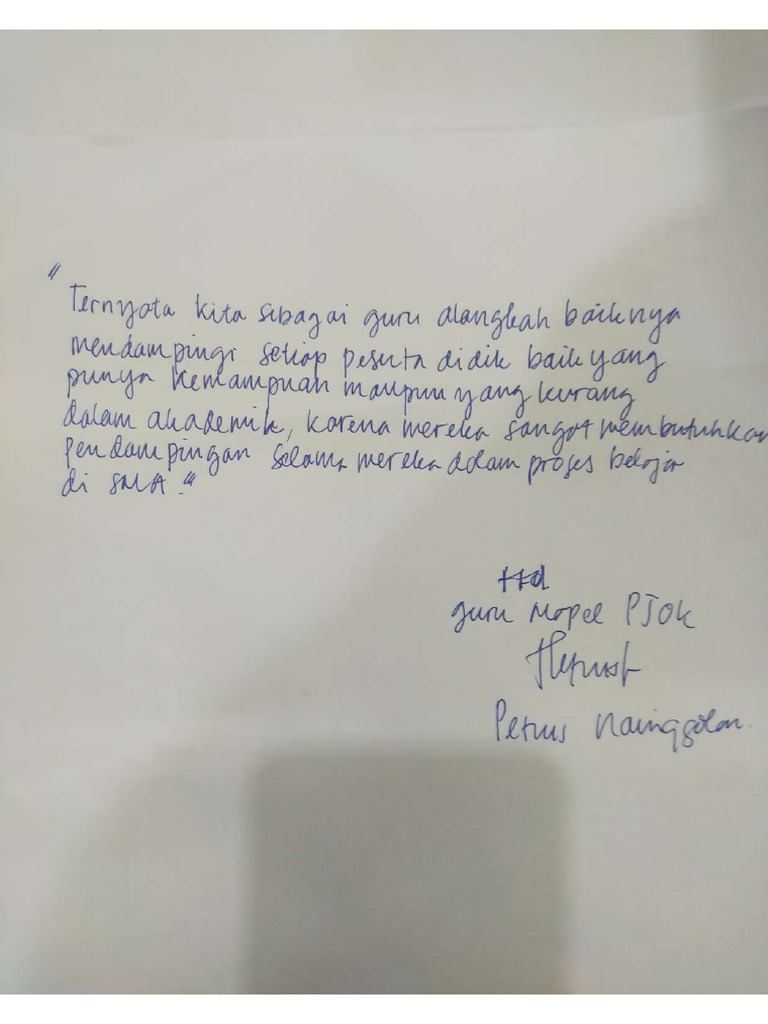 "
Ternyata kita sebagai guru alangkah baiknya
mendampingi setiap peserta didik baik yang
punya kemampuan maupun yang kurang
dalam akademik, karena mereka sangat membutuhkan
pendampingan selama mereka dalam proses belajar
di SMA."
ttd
guru Mapel PJOK
Petrus Nainggolan